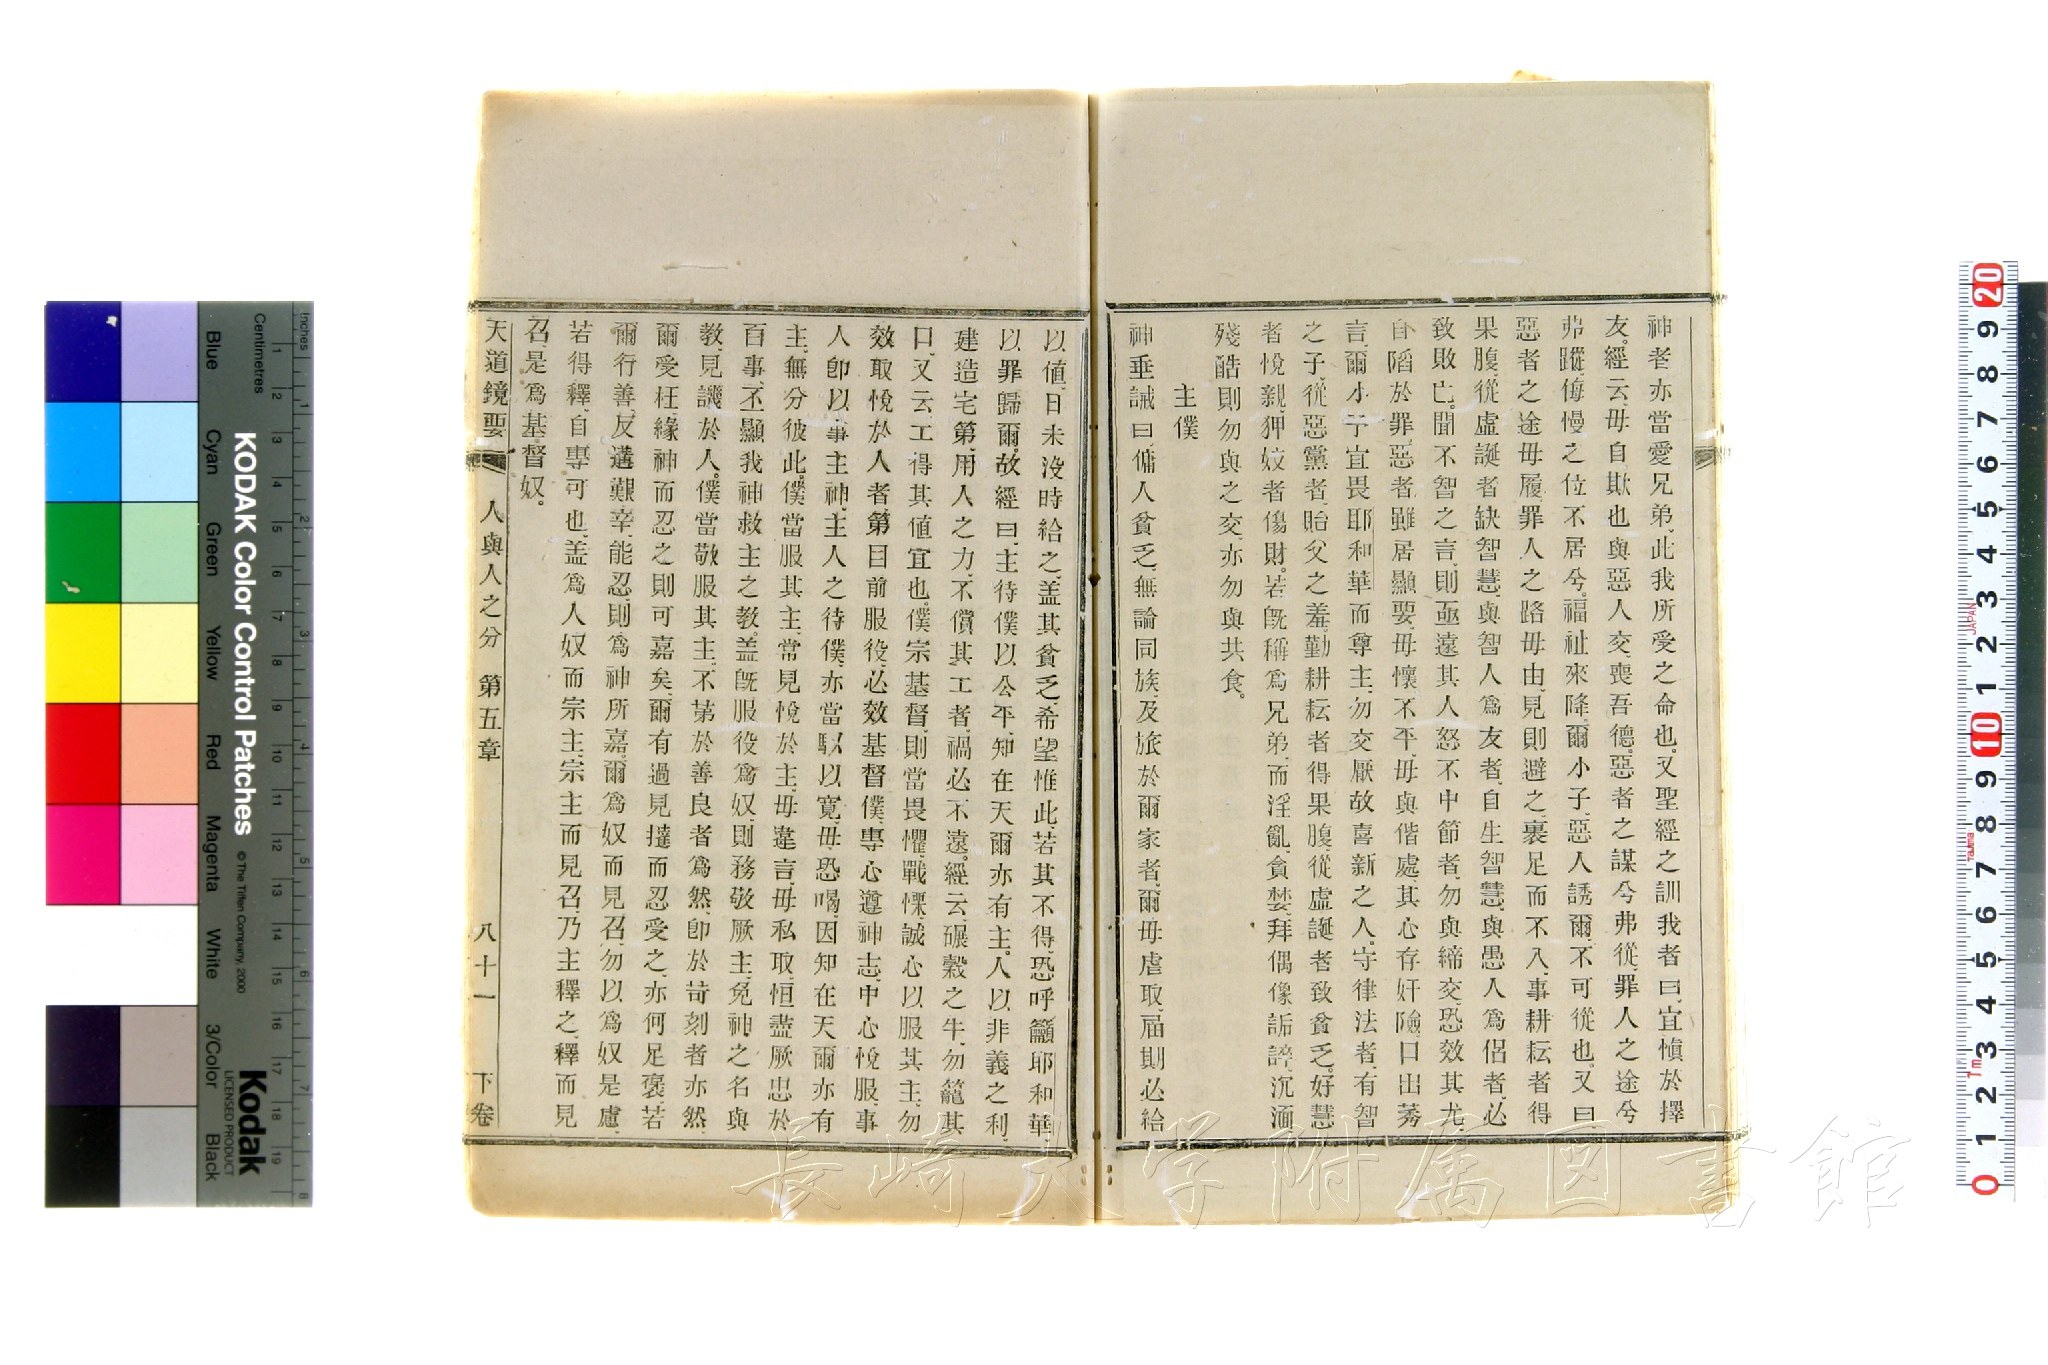 神者亦當愛兄弟、此我所受之命也。又聖經之訓我者曰、宜愼於擇
友。經云、毋自欺也、與惡人交、喪吾德。惡者之謀兮弗從、罪人之途兮
弗蹤、侮慢之位不居兮。福祉來降、爾小子、惡人誘爾、不可從也。又曰、
惡者之途毋履、罪人之路毋由、見則避之、裹足而不入、事耕耘者得
果腹、從虛誕者缺智慧、與智人爲友者、自生智慧、與愚人爲侶者、必
致敗亡。聞不智之言、則亟遠其人、怒不中節者、勿與締交、恐效其尤、
自陷於罪、惡者雖居顯要、毋懷不平、毋與偕處、其心存奸險、口出莠
言、爾小子宜畏耶和華而尊主、勿交厭故喜新之人。守律法者、有智
之子、從惡黨者、貽父之羞、勤耕耘者得果腹、從虛誕者致貧乏。好慧
者悅親、狎妓者傷財。若旣稱爲兄弟、而淫亂、貪婪、拜偶像、詬誶、沉湎、
殘酷、則勿與之交、亦勿與共食。
主僕
神垂誡曰、傭人貧乏、無論同族、及旅於爾家者、爾毋虐取、屆期必給
以値、日未沒時給之、盖其貧乏、希望惟此、若其不得、恐呼籲耶和華
以罪歸爾。故經曰、主待僕以公平、知在天爾亦有主。人以非義之利、
建造宅第、用人之力、不償其工者、禍必不遠。經云碾穀之牛、勿籠其
口、又云工得其値宜也。僕宗基督、則當畏懼、戰慄、誠心以服其主、勿
效取悅於人者、第目前服役、必效基督僕、專心遵神志、中心悅服、事
人卽以事主神、主人之待僕、亦當馭以寬、毋恐喝、因知在天爾亦有
主、無分彼此。僕當服其主、常見悅於主、毋違言、毋私取、恒盡厥忠於
百事、丕顯我神救主之教。盖旣服役爲奴、則務敬厥主、免神之名與
教、見譏於人。僕當敬服其主、不第於善良者爲然、卽於苛刻者亦然、
爾受枉、緣神而忍之則可嘉矣、爾有過見撻而忍受之、亦何足褒、若
爾行善、反遘艱辛、能忍、則爲神所嘉、爾爲奴而見召、勿以爲奴是慮、
若得釋、自專可也、盖爲人奴而宗主、宗主而見召、乃主釋之、釋而見
召、是爲基督奴。
天道鏡要 人與人之分 第五章 八十一 下卷
KODAK Color Control Patches
© The Tiffen Company, 2000
Kodak
LICENSED PRODUCT
Inches
Centimetres
Blue Cyan Green Yellow Red Magenta White 3/Color Black
長崎大学附属図書館